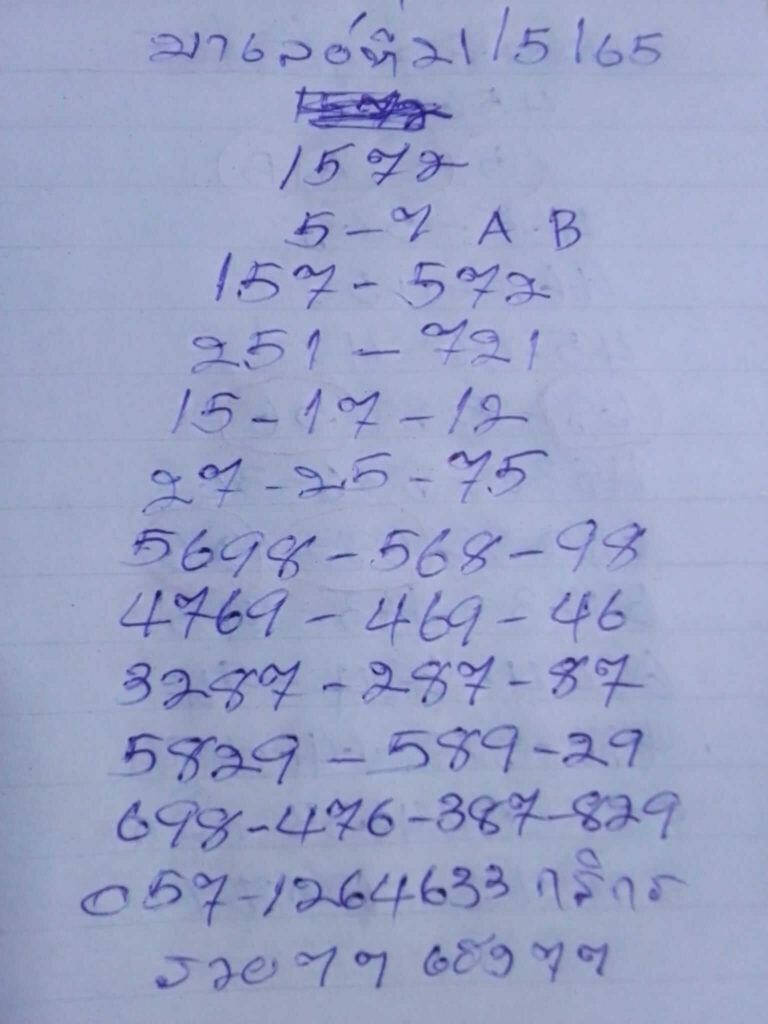 มาเลย์ที่ 21/5/65
1572
5-7 A B
157-572
251-721
15-17-12
27-25-75
5698-568-98
4769-469-46
3287-287-87
5829-589-29
698-476-387-829
057-1264633 กสิกร
รวยๆๆ เฮงๆๆ